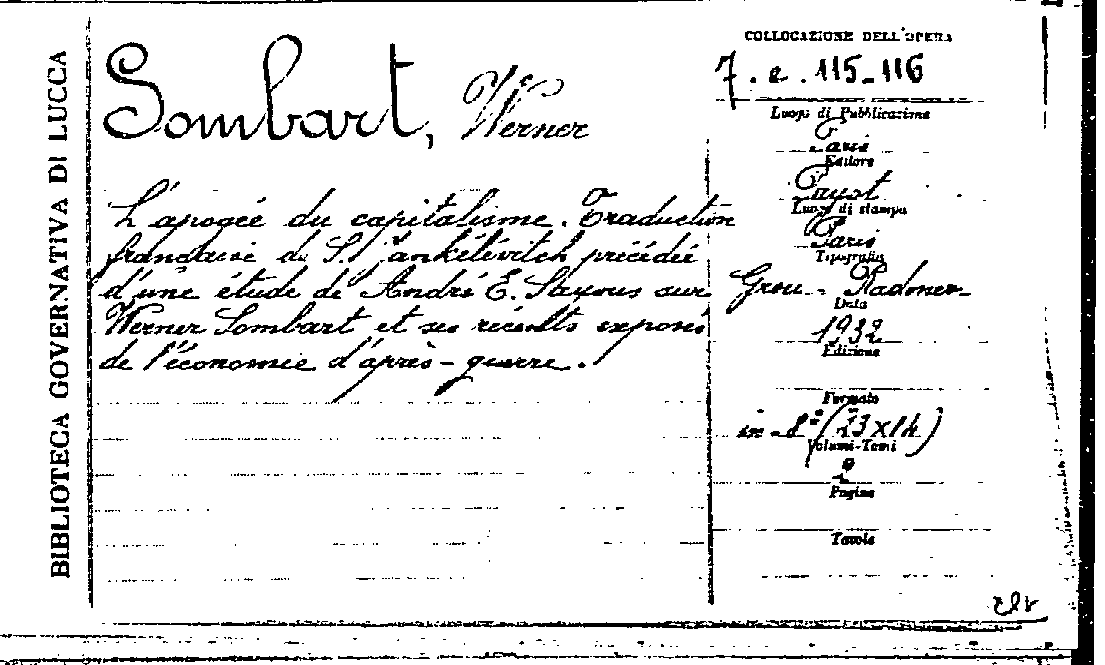 BIBLIOTECA GOVERNATIVA DI LUCCA
Sombart, Werner
L'apogée du capitalisme. Traduction
française de S. Jankélévitch précédée
d'une étude de André E. Sayous sur
Werner Sombart et ses récents exposés
de l'économie d'après-guerre.
COLLOCAZIONE DELL'OPERA
7. e. 115-116
Luogo di Pubblicazione
Paris
Editore
Payot
Luogo di stampa
Paris
Tipografia
Grou-Radenez
Data
1932
Edizione
Formato
in-8° (23x14)
Volumi-Tomi
2
Pagine
Tavole